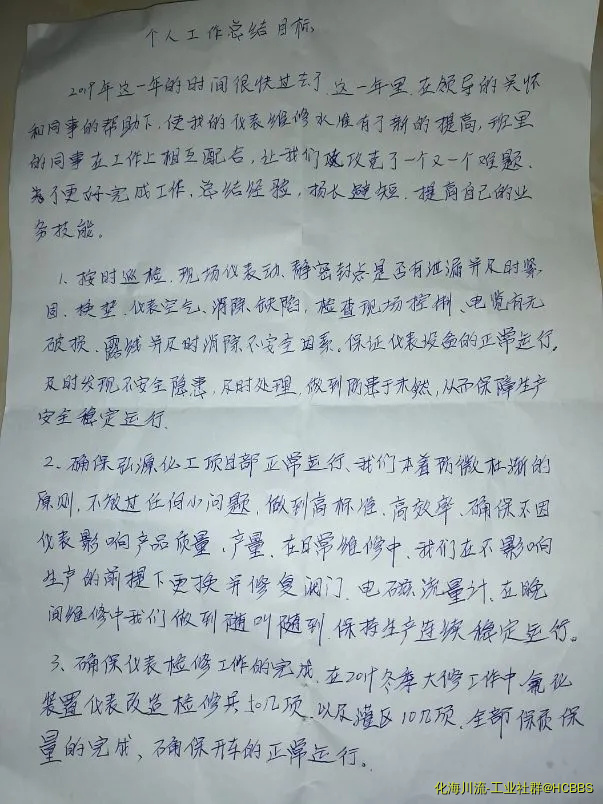 个人工作总结目标
2019年这一年的时间很快过去了、这一年里、在领导的关怀
和同事的帮助下,使我的仪表维修水准有了新的提高,班里
的同事在工作上相互配合,让我们攻克了一个又一个难题、
为了更好完成工作,总结经验,扬长避短,提高自己的业
务技能。
1、按时巡检、现场仪表动、静密封点是否有泄漏并及时紧
固、换垫、仪表空气、消除缺陷,检查现场控制、电缆有无
破损、露线并及时消除不安全因素。保证仪表设备的正常运行。
及时发现不安全隐患,及时处理,做到防患于未然,从而保障生产
安全稳定运行.
2、确保弘源化工项目部正常运行、我们本着防微杜渐的
原则,不放过任何小问题,做到高标准、高效率、确保不因
仪表影响产品质量、产量、在日常维修中、我们在不影响
生产的前提下更换并修复阀门、电磁流量计、在晚
间维修中我们做到随叫随到、保持生产连续稳定运行。
3、确保仪表检修工作的完成、在2019冬季大修工作中、氧化
装置仪表改造检修共50几项、以及灌区10几项、全部保质保
量的完成、确保开车的正常运行。
化海川流-工业社群@HCBBS